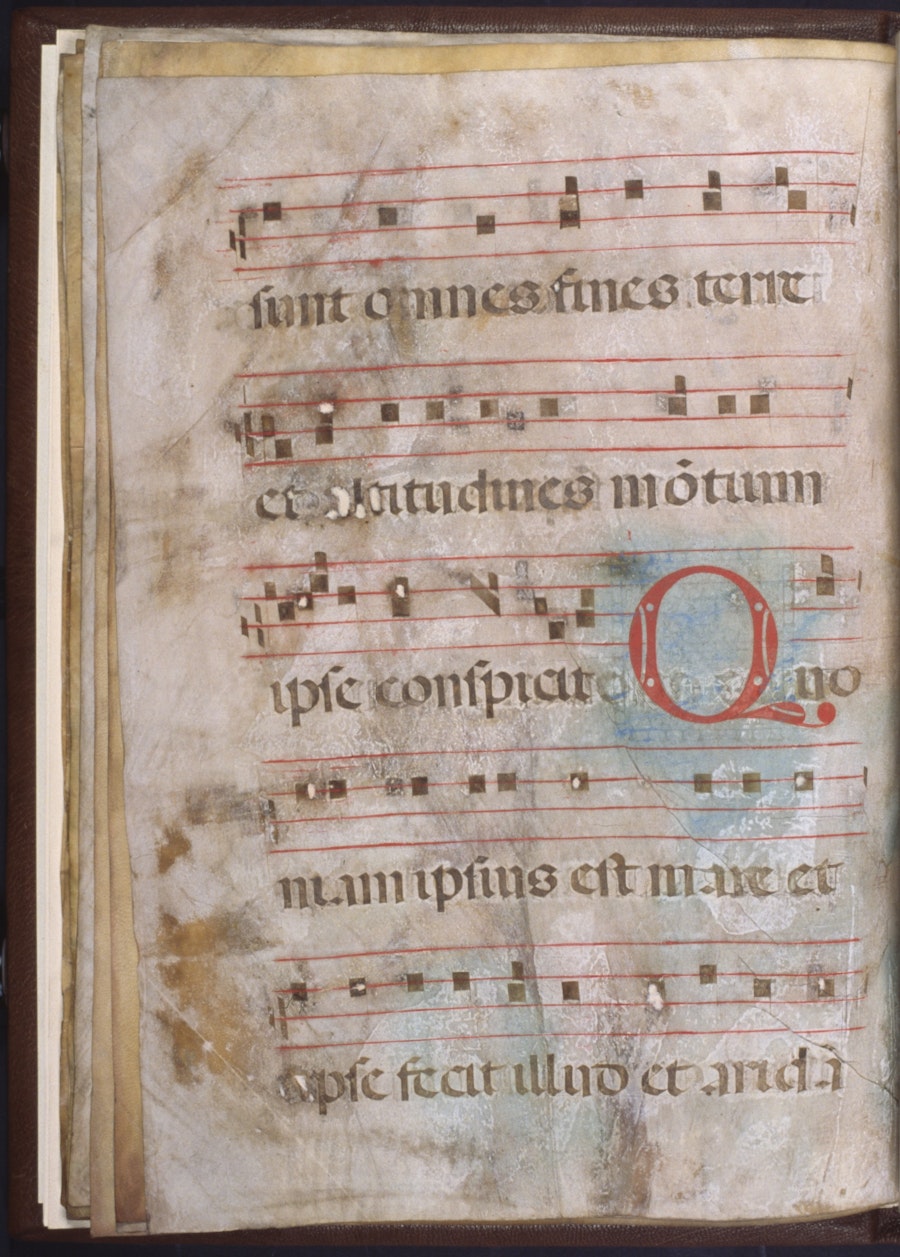 sunt omnes fines terre
et altitudines mõtium
ipse conspicit Quo
niam ipsius est mare et
ipse fecit illud et aridã